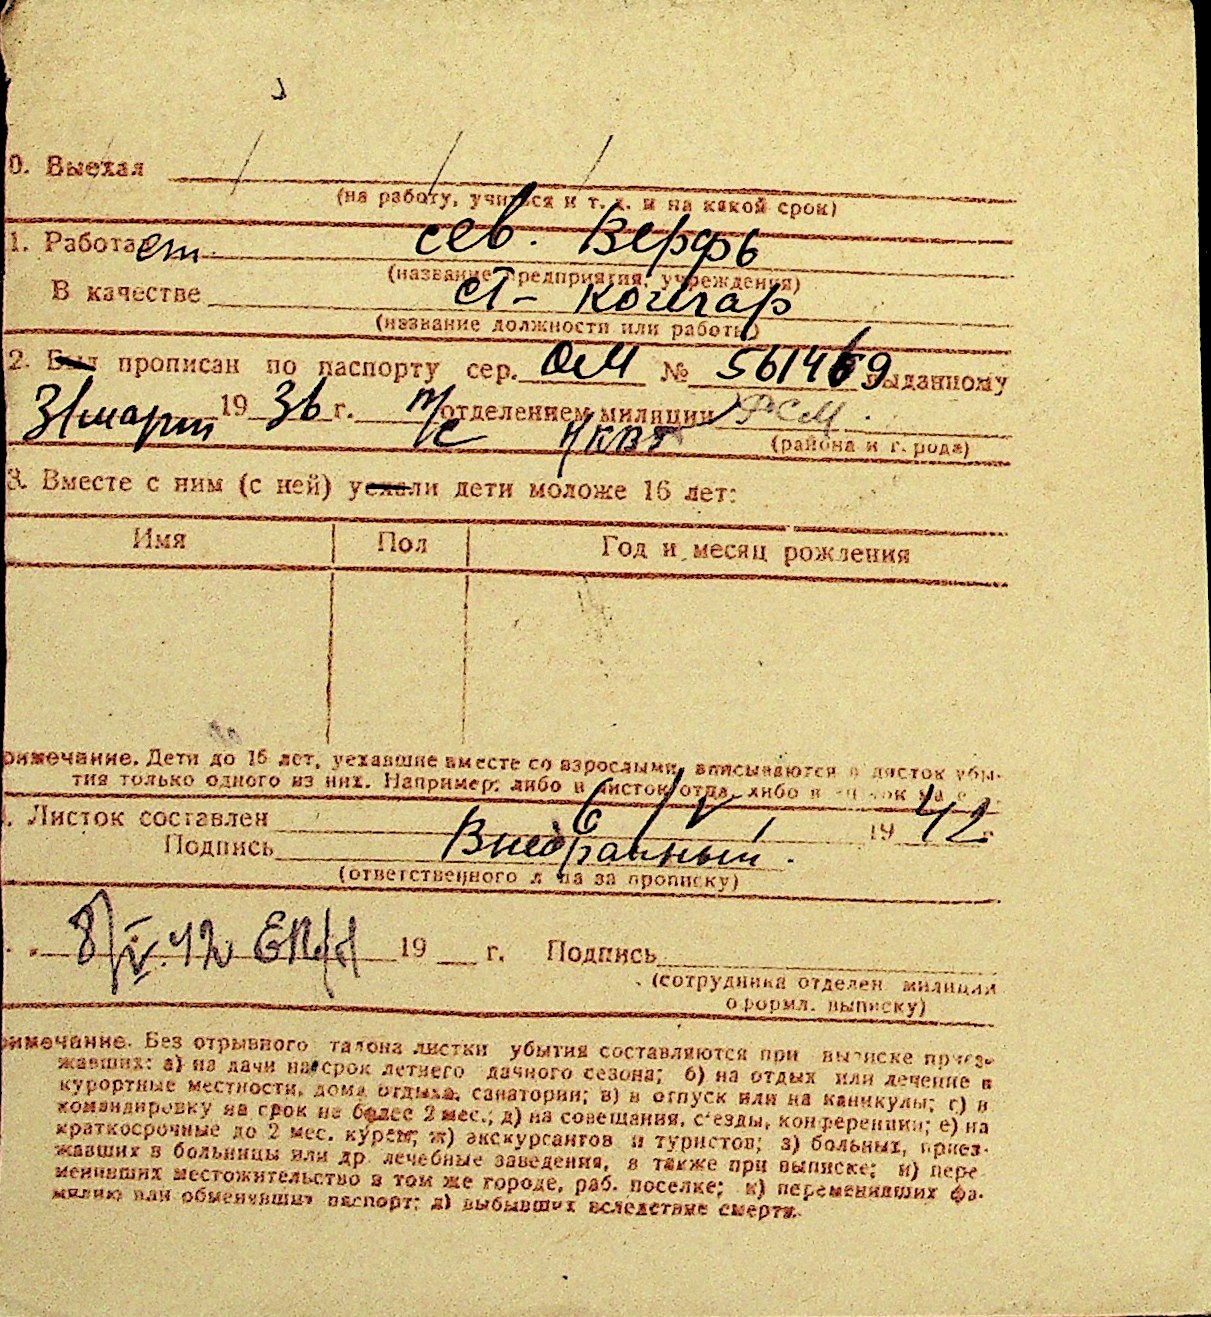 0. Выехал
(на работу, учиться и т. д. и на какой срок)
1. Работает сев. Верфь
(название предприятия, учреждения)
В качестве ст- кочегар
(название должности или работы)
2. Был прописан по паспорту сер. ОМ № 561469 выданному
31 марта 1936 г. отделением милиции
НКВТ (района и города)
3. Вместе с ним (с ней) уехали дети моложе 16 лет:
Имя Пол Год и месяц рождения
римечание. Дети до 16 лет, уехавшие вместе со взрослыми, вписываются в листок убы-
тия только одного из них. Например: либо в листок отца, либо в
. Листок составлен 6/V 1942
Подпись
(ответственного лица за прописку)
8/V.42 19 г. Подпись
(сотрудника отделен милиции
оформл. выписку)
имечание. Без отрывного талона листки убытия составляются при выписке приез-
жавших: а) на дачи на срок летнего дачного сезона; б) на отдых или лечение в
курортные местности, дома отдыха, санатории; в) в отпуск или на каникулы; г) в
командировку на срок не более 2 мес.; д) на совещания, съезды, конференции; е) на
краткосрочные до 2 мес. курсы; ж) экскурсантов и туристов; з) больных, приез-
жавших в больницы или др. лечебные заведения, а также при выписке; и) пере
менивших местожительство в том же городе, раб. поселке; к) переменивших фа-
милию или обменявших паспорт; л) выбывших вследствие смерти.